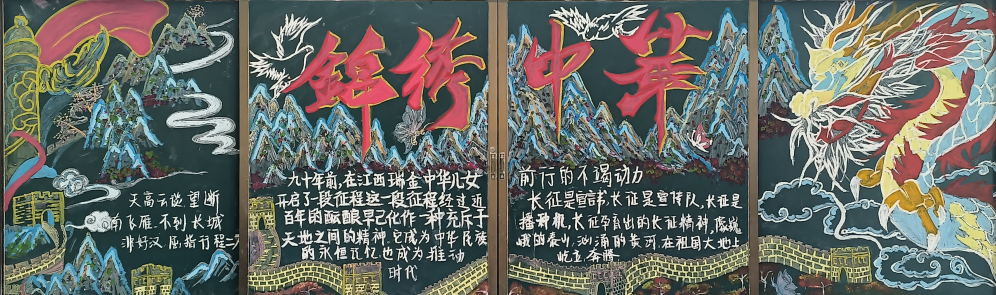 锦绣中华
天高云淡望断
南飞雁 不到长城
非好汉 屈指行程二
九十年前,在江西瑞金中华儿女
开启了一段征程这一段征程经过近
百年的酝酿早已化作一种充斥于
天地之间的精神.它成为中华民族
的永恒记忆也成为推动
时代
前行的不竭动力
长征是宣言书,长征是宣传队,长征是
播种机,长征孕育出的长征精神,像巍
峨的泰山,汹涌的黄河.在祖国大地上
屹立奔腾